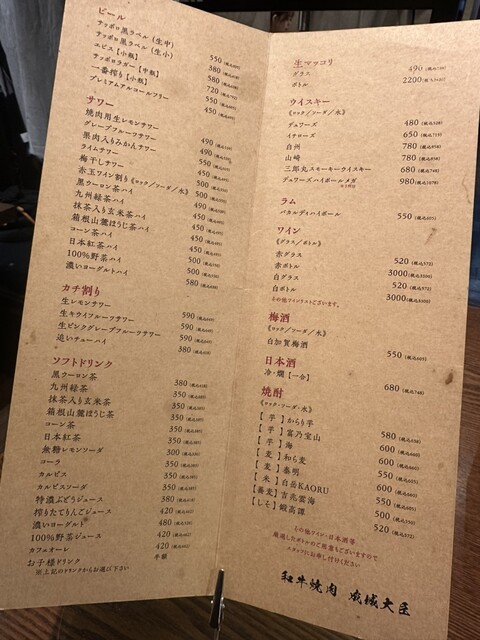 ビール
サッポロ黒ラベル（生中） 550
サッポロ黒ラベル（生小） 380
エビス【小瓶】 580
サッポロラガー【中瓶】 720
一番搾り【小瓶】 550
プレミアムアルコールフリー 450
サワー
焼肉用生レモンサワー 490
グレープフルーツサワー 490
果肉入りみかんサワー 550
ライムサワー 450
梅干しサワー 500
赤玉ワイン割り《ロック／ソーダ／水》 500
黒ウーロン茶ハイ 490
九州緑茶ハイ 450
抹茶入り玄米茶ハイ 450
箱根山麓ほうじ茶ハイ 450
コーン茶ハイ 450
日本紅茶ハイ 500
100%野菜ハイ 500
濃いヨーグルトハイ 580
カチ割り
生レモンサワー 590
生キウイフルーツサワー 590
生ピンクグレープフルーツサワー 590
追いチューハイ 380
ソフトドリンク
黒ウーロン茶 380
九州緑茶 350
抹茶入り玄米茶 350
箱根山麓ほうじ茶 350
コーン茶 350
日本紅茶 350
無糖レモンソーダ 300
コーラ 350
カルピス 350
カルピスソーダ 350
特濃ぶどうジュース 380
搾りたてりんごジュース 420
濃いヨーグルト 480
100%野菜ジュース 420
カフェオーレ 420
お子様ドリンク 半額
※上記のドリンクからお選び下さい
生マッコリ
グラス 490
ボトル 2200
ウイスキー
《ロック／ソーダ／水》
デュワーズ 480（税込528）
イチローズ 650（税込715）
白州 780（税込858）
山崎 780（税込858）
三郎丸スモーキーウイスキー 680（税込748）
デュワーズハイボールメガ 980（税込1078）
ラム
バカルディハイボール 550（税込605）
ワイン
《グラス／ボトル》
赤グラス 520（税込572）
赤ボトル 3000（税込3300）
白グラス 520（税込572）
白ボトル 3000（税込3300）
その他ワインリストございます。
梅酒
《ロック／ソーダ／水》
白加賀梅酒 550（税込605）
日本酒
冷・燗【一合】 680（税込748）
焼酎
《ロック・ソーダ・水》
【芋】からり芋 580（税込638）
【芋】富乃宝山 600（税込660）
【芋】海 600（税込660）
【麦】和ら麦 550（税込605）
【麦】泰明 550（税込605）
【米】白岳KAORU 600（税込660）
【蕎麦】吉兆雲海 550（税込605）
【しそ】鍛高譚 500
520（税込572）
その他ワイン・日本酒等
厳選したボトルのご用意もございますので、
スタッフにお申し付けください
和牛焼肉 成城大臣